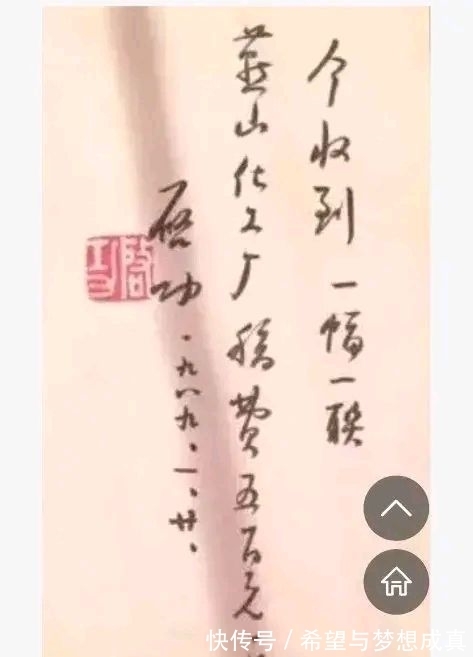 今收到一幅一联
燕山化工厂稿费五百元
启功
一九八九、一、廿、
启功
快传号/希望与梦想成真